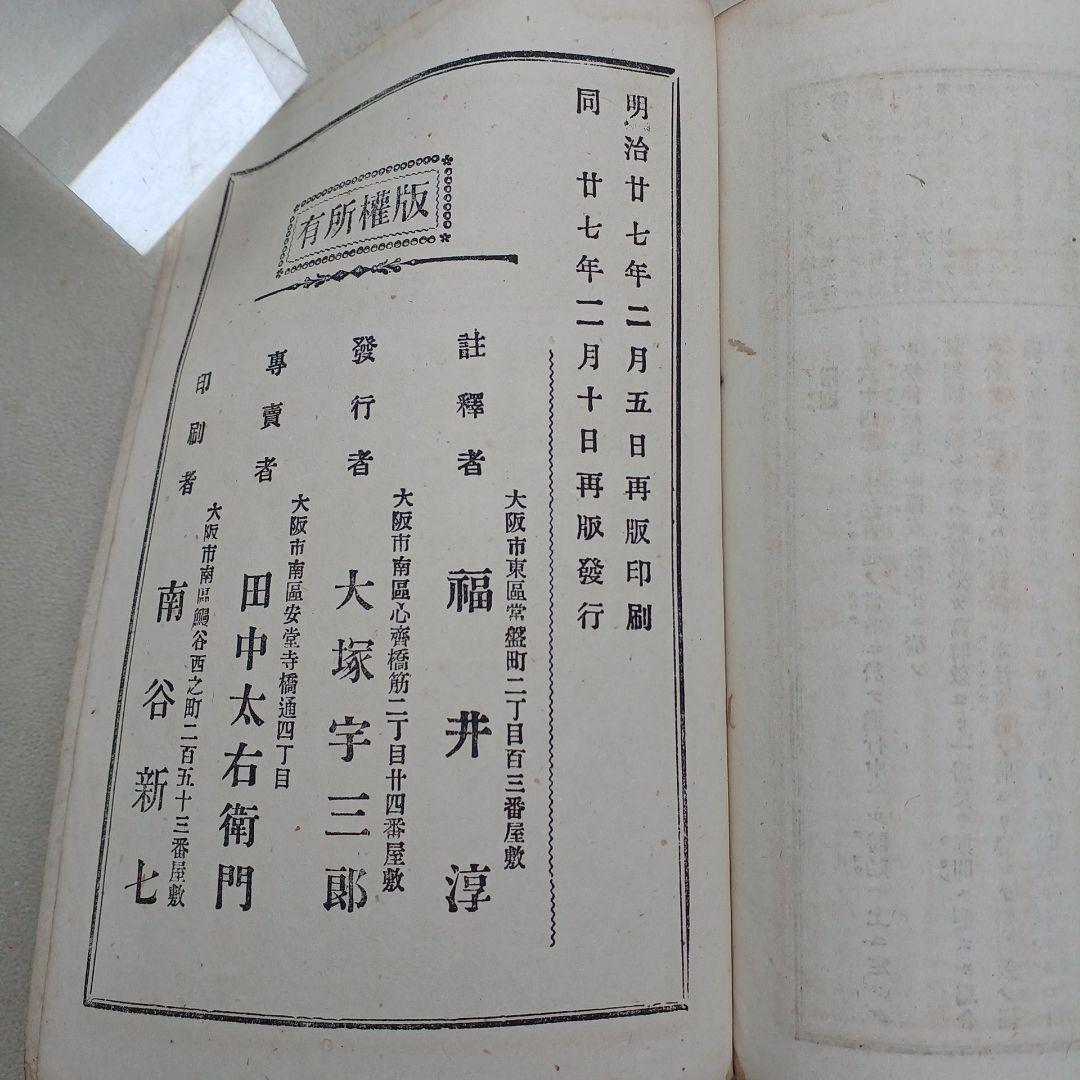 明治廿七年二月五日再版印刷
同 廿七年二月十日再版發行
版權所有
註釋者
大阪市東區常盤町二丁目百三番屋敷
福井淳
發行者
大阪市南區心齊橋筋二丁目廿四番屋敷
大塚宇三郎
專賣者
大阪市南區安堂寺橋通四丁目
田中太右衛門
印刷者
大阪市南區鰻谷西之町二百五十三番屋敷
南谷新七